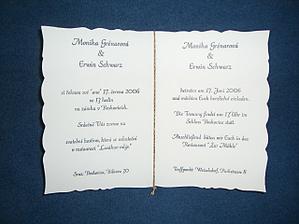 Monika Grénarová
&
Erwin Schwarz
si řeknou své "ano" 17. června 2006
ve 17 hodin
na zámku v
Srdečně Vás zveme na
svatební hostinu, která se uskuteční
v restauraci
Monika Grénarová
&
Erwin Schwarz
heiraten am 17. Juni 2006
und möchten Euch herzlichst einladen.
Die Trauung findet um 17 Uhr im
Schloss statt.
Anschließend bitten wir Euch in das
Restaurant "Zur Mühle"